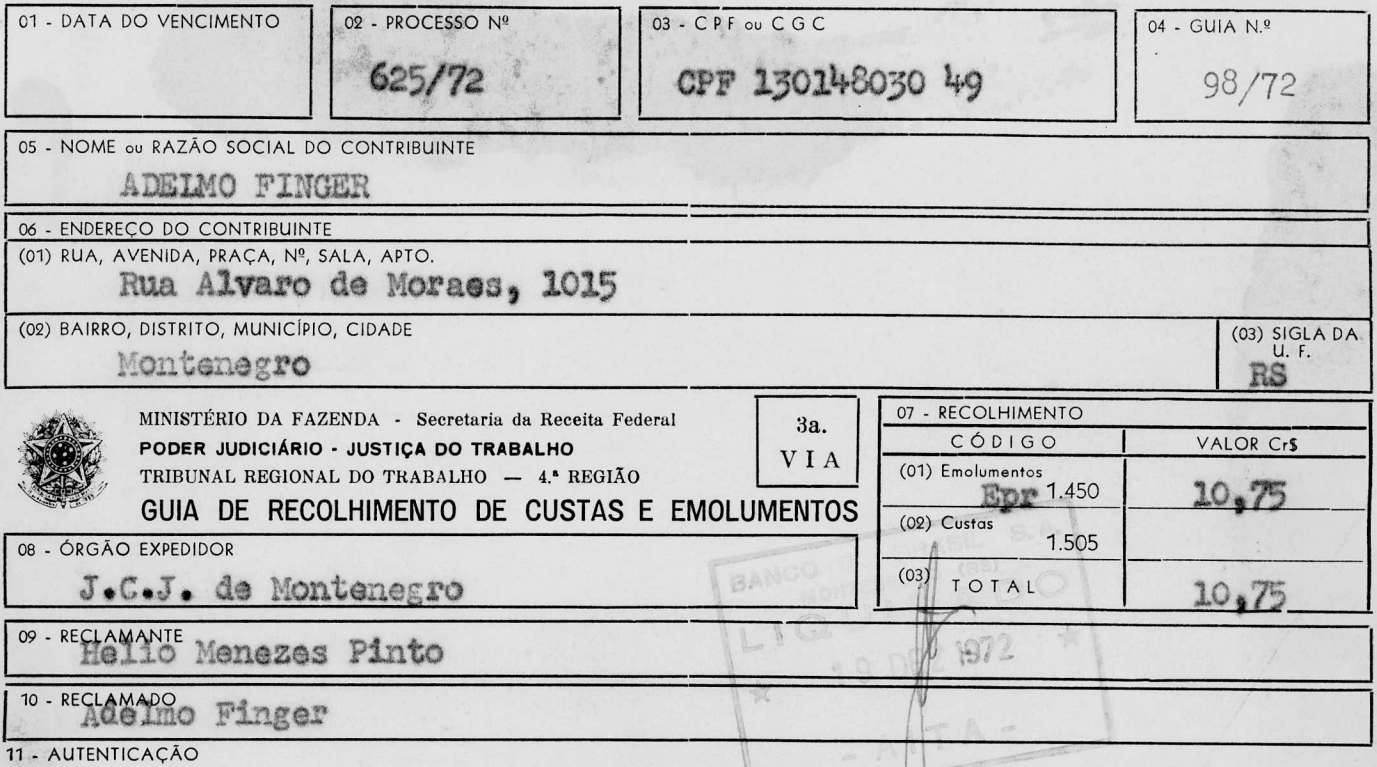 01 - DATA DO VENCIMENTO
02 - PROCESSO Nº
625/72
03 - CPF ou CGC
CPF 130148030 49
04 - GUIA N.º
98/72
05 - NOME ou RAZÃO SOCIAL DO CONTRIBUINTE
ADELMO FINGER
06 - ENDEREÇO DO CONTRIBUINTE
(01) RUA, AVENIDA, PRAÇA, Nº, SALA, APTO.
Rua Alvaro de Moraes, 1015
(02) BAIRRO, DISTRITO, MUNICÍPIO, CIDADE
Montenegro
(03) SIGLA DA
U. F.
RS
MINISTÉRIO DA FAZENDA - Secretaria da Receita Federal
PODER JUDICIÁRIO - JUSTIÇA DO TRABALHO
TRIBUNAL REGIONAL DO TRABALHO — 4.ª REGIÃO
GUIA DE RECOLHIMENTO DE CUSTAS E EMOLUMENTOS
3a.
VIA
07 - RECOLHIMENTO
CÓDIGO VALOR Cr$
(01) Emolumentos
Epr 1.450 10,75
(02) Custas
1.505
(03) TOTAL 10,75
08 - ÓRGÃO EXPEDIDOR
J.C.J. de Montenegro
09 - RECLAMANTE
Helio Menezes Pinto
10 - RECLAMADO
Adelmo Finger
11 - AUTENTICAÇÃO
BANCO DO BRASIL S.A.
MONTENEGRO (RS)
LIQUIDADO
19 DEZ 1972